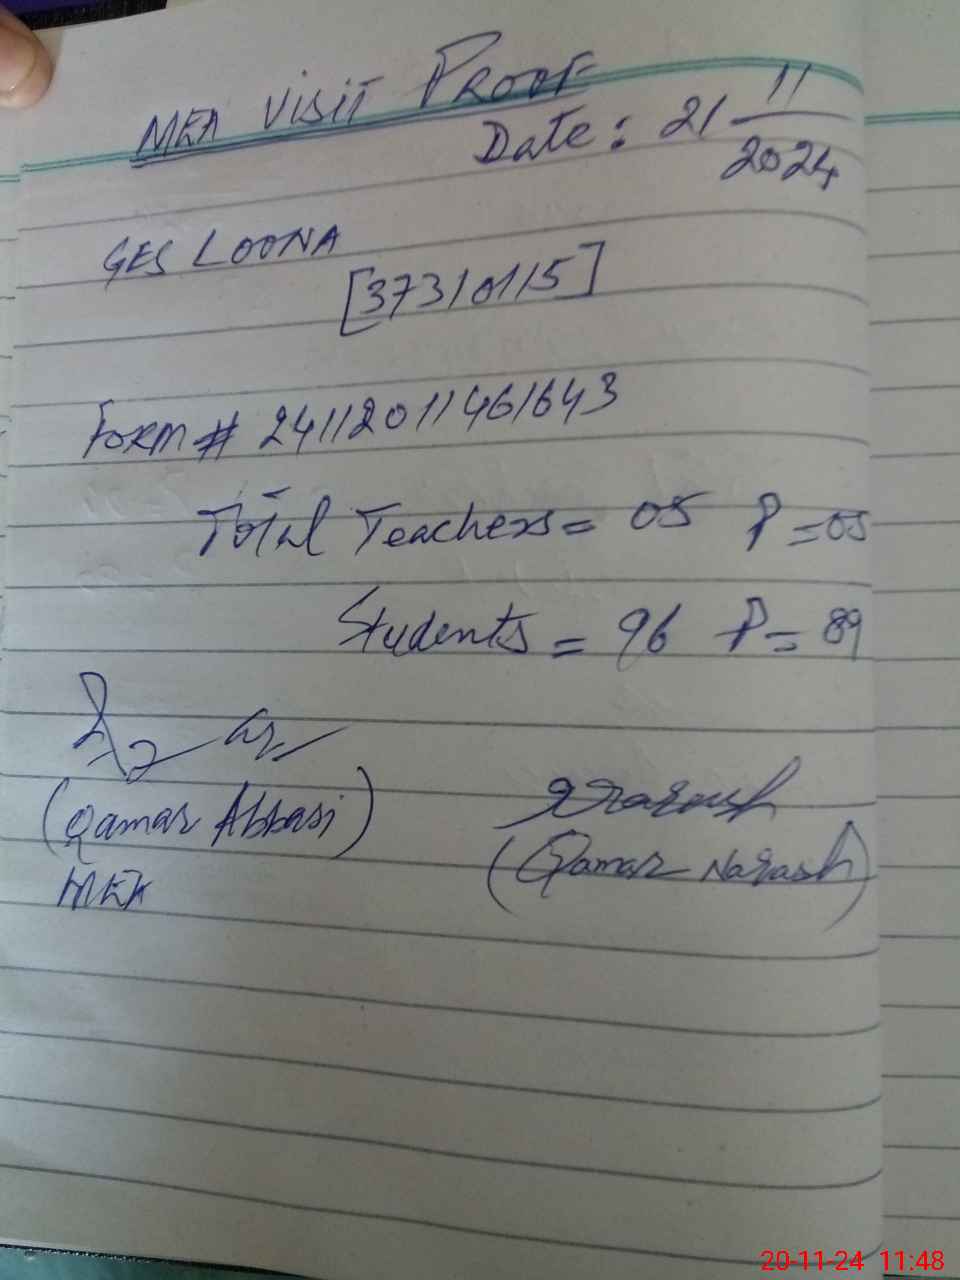 MEA VISIT PROOF
Date: 21 11/2024
GES LOONA
[37310115]
Form # 24112011461643
Total Teachers = 05 P = 05
Students = 96 P = 89
(Qamar Abbasi)
(Qamar Natash)
MEA
20-11-24 11:48